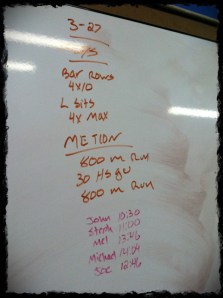 3-27
Bar Rows
4x10
L Sits
4x Max
METION
800 m Run
30 HSPU
800 m Run
John 10:30
11:00
Mel 13:46
Michael
Joe 12:46